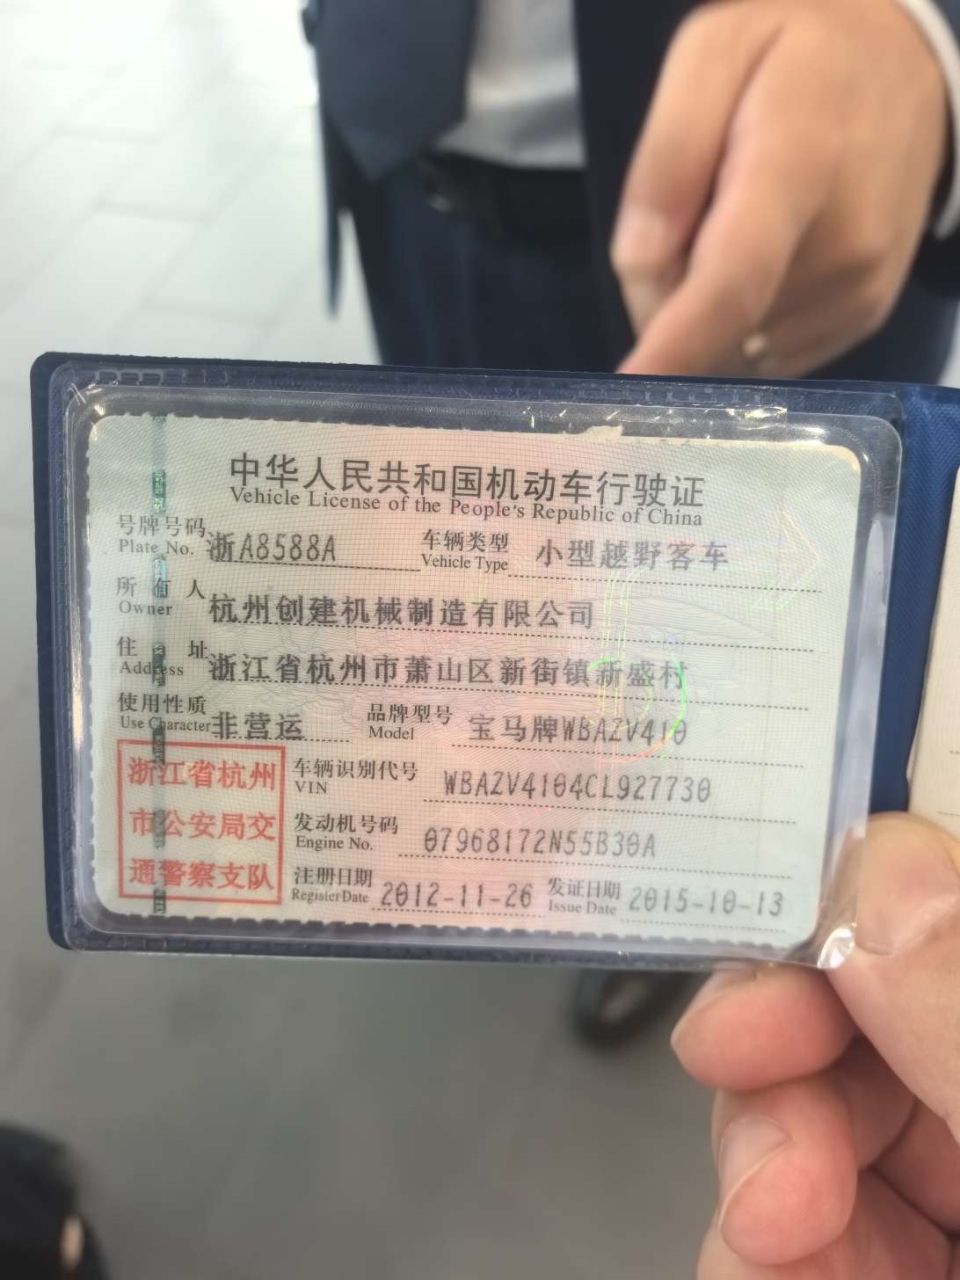 中华人民共和国机动车行驶证
Vehicle License of the People's Republic of China
号牌号码 浙A8588A 车辆类型 小型越野客车
Plate No. Vehicle Type
所有人 杭州创建机械制造有限公司
Owner
住址 浙江省杭州市萧山区新街镇新盛村
Address
使用性质 非营运 品牌型号 宝马牌WBAZV410
Use Character Model
浙江省杭州
市公安局交
通警察支队
车辆识别代号 WBAZV4104CL927730
VIN
发动机号码 07968172N55B30A
Engine No.
注册日期 2012-11-26 发证日期 2015-10-13
Register Date Issue Date